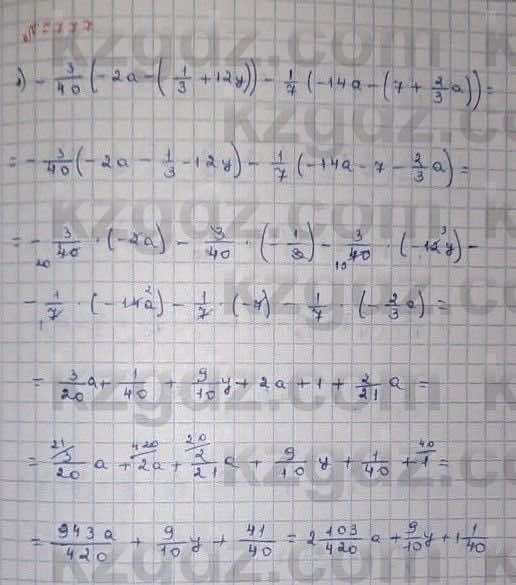 №777
1) -3/40(-2a-(1/3+12y))-1/7(-14a-(7+2/3a))=
=-3/40(-2a-1/3-12y)-1/7(-14a-7-2/3a)=
=-3/40·(-2a)-3/40·(-1/3)-3/40·(-12y)-
-1/7·(-14a)-1/7·(-7)-1/7·(-2/3a)=
=3/20a+1/40+9/10y+2a+1+2/21a=
=3/20a+2a+2/21a+9/10y+1/40+1=
=943a/420+9/10y+41/40=2 103/420a+9/10y+1 1/40
kzgdz.com